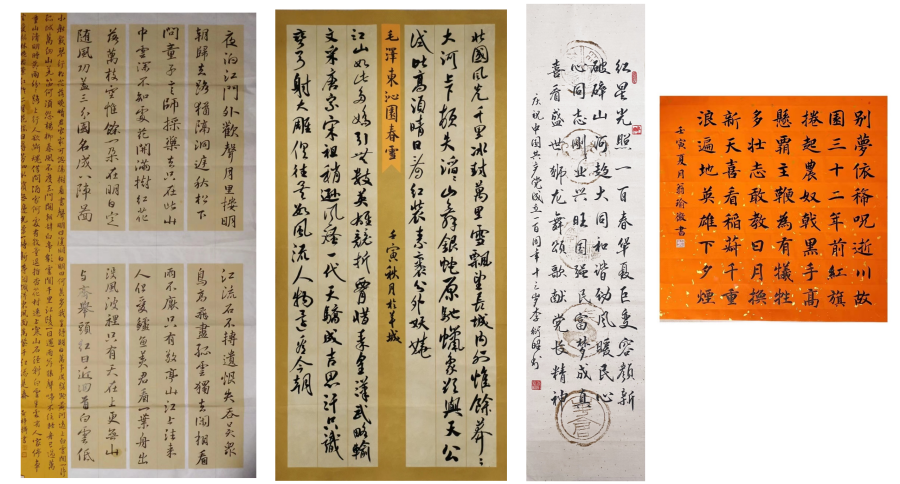 夜泊江門外歡聲月里樓明
朝歸去路猶隔洞庭秋松下
問童子言師採藥去只在此山
中雲深不知處花開滿樹紅花
落萬枝空惟餘一朵在明日定
随風功蓋三分國名成八陣圖
江流石不轉遺恨失吞吴衆
鳥高飛盡孤雲獨去閑相看
兩不厭只有敬亭山江上往來
人但愛鱸魚美君看一葉舟出
没風波裡只有天在上更無山
与齊舉頭紅日近回首白雲低
北國風光千里冰封萬里雪飄望長城内外惟餘莽々
大河上下頓失滔々山舞銀蛇原馳蠟象欲與天公
試比高須晴日看紅裝素裹分外妖嬈
毛澤東沁園春雪
壬寅秋月於羊城
江山如此多嬌引無數英雄競折腰惜秦皇漢武略輸
文采唐宗宋祖稍遜風騷一代天驕成吉思汗只識
彎弓射大雕俱往矣數風流人物還看今朝
红星光照一百春华夏巨变容颜新
破碎山河趋大同和谐劲风暖民心
心同志刚业兴旺国强民富梦成真
喜看盛世狮龙舞颂歌献党长精神
庆祝中国共产党成立一百周年十三岁李衍昭书
別夢依稀咒逝川故
園三十二年前紅旗
捲起農奴戟黑手高
懸霸主鞭為有犧牲
多壮志敢教日月換
新天喜看稻菽千重
浪遍地英雄下夕煙
壬寅夏月翁瑜徽書